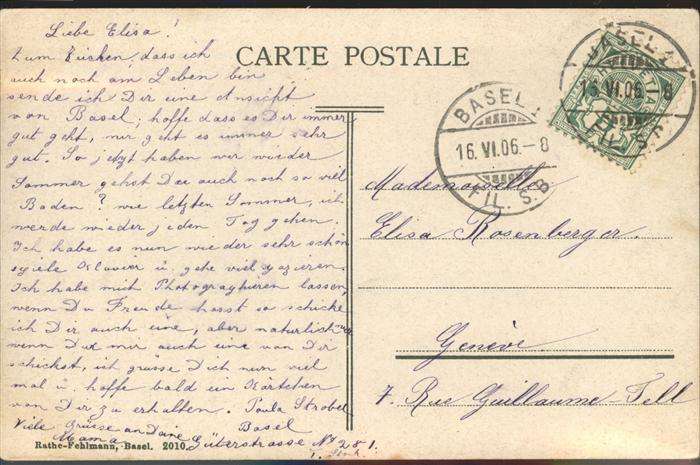 Liebe Elisa!
Zum Zeichen, dass ich
auch noch am Leben bin
sende ich Dir eine Ansicht
von Basel, hoffe dass es Dir immer
gut geht, mir geht es immer sehr
gut. So jetzt haben wir wieder
Sommer gehst Du auch noch so viel
Baden? wie letzten Sommer, ich
werde wieder jeden Tag gehen.
Ich habe es nun wieder sehr schön
spiele Klavier u. gehe viel spazieren.
Ich habe mich Photographieren lassen,
wenn Du Freude hast so schicke
ich Dir auch eine, aber natürlich nur
wenn Du mir auch eine von Dir
schickst, ich grüsse Dich nun viel
mal u. hoffe bald ein Kärtchen
von Dir zu erhalten. Paula Strobel
Viele Grüsse an Deine Basel
Mama Güterstrasse No 281.
Rathe-Fehlmann, Basel. 2010.
CARTE POSTALE
BASEL 2
16.VI.06.-8
FIL. S.B.
BASEL 2
16.VI.06.-8
FIL. S.B.
Mademoiselle
Elisa Rosenberger.
Genève
7. Rue Guillaume-Tell